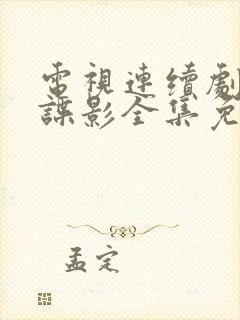 電視連續劇
諜影全集免
孟定